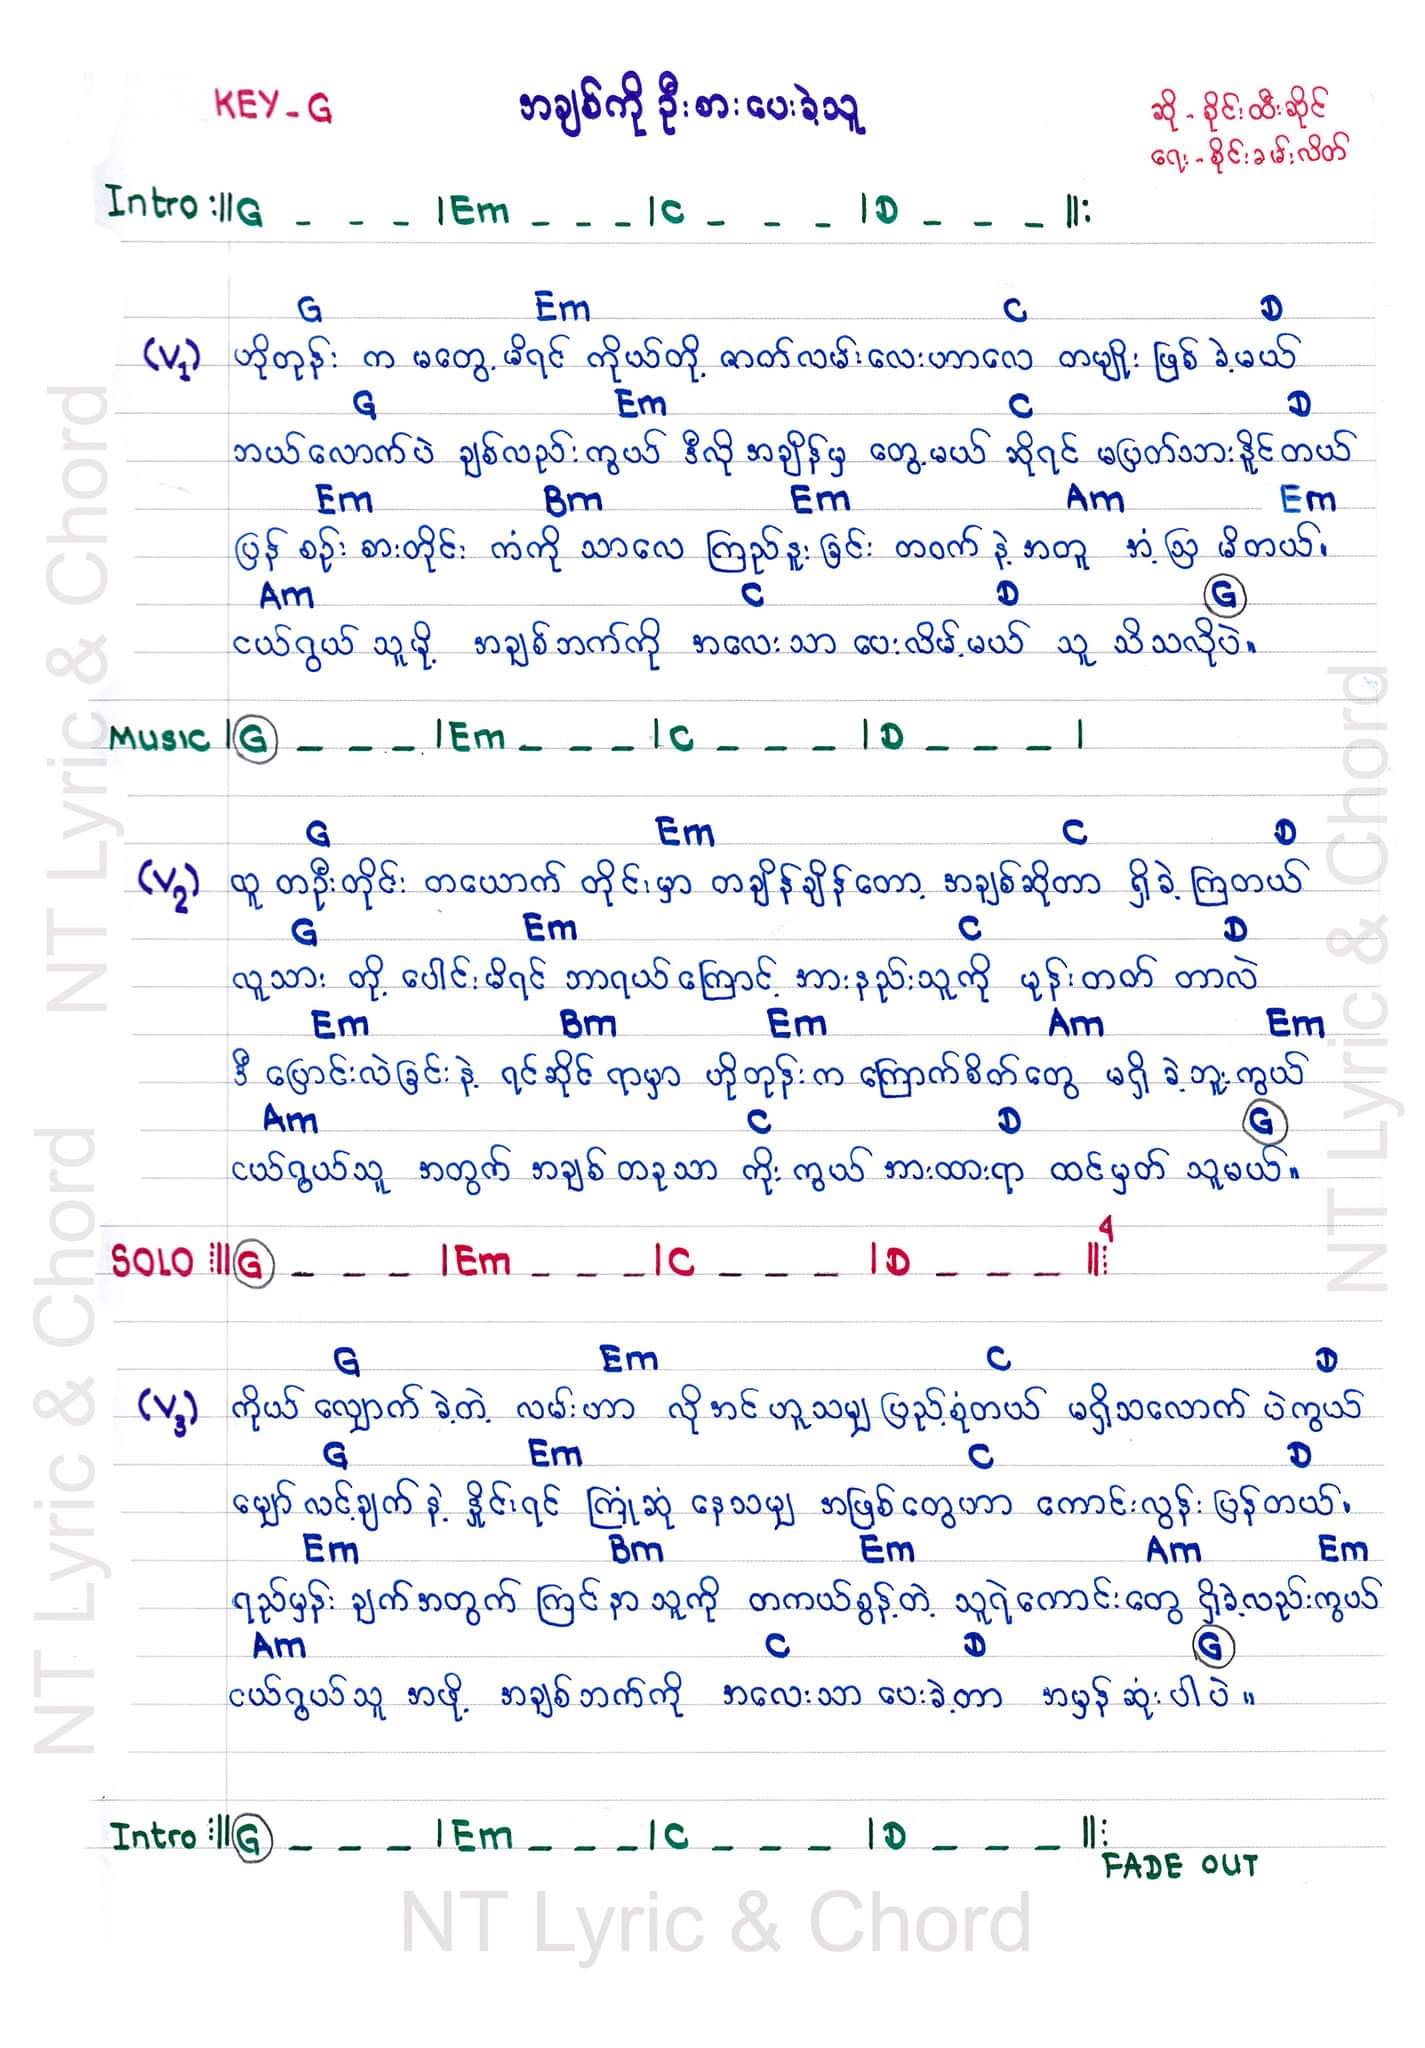 KEY - G
အချစ်ကို ဦးစားပေးခဲ့သူ
ဆို - စိုင်းထီးဆိုင်
ရေး - စိုင်းခမ်းလိတ်
Intro :||G _ _ _ |Em _ _ _ |C _ _ _ |D _ _ _ ||:
G Em C D
(V1) ဟိုတုန်း က မတွေ့မိရင် ကိုယ်တို့ ဇာတ်လမ်းလေးဟာလေ တမျိုး ဖြစ် ခဲ့မယ်
G Em C D
ဘယ်လောက်ပဲ ချစ်လည်းကွယ် ဒီလို အချိန်မှ တွေ့မယ် ဆိုရင် မပြတ်သားနိူင်တယ်
Em Bm Em Am Em
ပြန် စဉ်း စားတိုင်း ကံကို သာလေ ကြည်နူး ခြင်း တဝက် နဲ့ အတူ အံ့ဩ မိတယ်၊
Am C D G
ငယ်ရွယ် သူမို့ အချစ်ဘက်ကို အလေးသာ ပေးလိမ့်မယ် သူ သိသလိုပဲ။
MUSIC |G _ _ _ |Em _ _ _ |C _ _ _ |D _ _ _ |
G Em C D
(V2) လူ တဦးတိုင်း တယောက် တိုင်းမှာ တချိန်ချိန်တော့ အချစ်ဆိုတာ ရှိခဲ့ ကြတယ်
G Em C D
လူသား တို့ ပေါင်းမိရင် ဘာရယ်ကြောင့် အားနည်းသူကို မုန်းတတ် တာလဲ
Em Bm Em Am Em
ဒီ ပြောင်းလဲခြင်းနဲ့ ရင်ဆိုင် ရာမှာ ဟိုတုန်းက ကြောက်စိတ်တွေ မရှိ ခဲ့ဘူးကွယ်
Am C D G
ငယ်ရွယ်သူ အတွက် အချစ် တခုသာ ကိုး ကွယ် အားထားရာ ထင်မှတ် သူမယ်။
SOLO :|||G _ _ _ |Em _ _ _ |C _ _ _ |D _ _ _ ||: 4
G Em C D
(V3) ကိုယ် လျှောက် ခဲ့တဲ့ လမ်းဟာ လိုအင် ဟူသမျှ ပြည့်စုံတယ် မရှိသလောက် ပဲကွယ်
G Em C D
မျှော် လင့်ချက် နဲ့ နှိူင်းရင် ကြုံဆုံ နေသမျှ အဖြစ်တွေဟာ ကောင်းလွန်း ပြန်တယ်၊
Em Bm Em Am Em
ရည်မှန်း ချက်အတွက် ကြင် နာ သူကို တကယ်စွန့်တဲ့ သူရဲကောင်းတွေ ရှိခဲ့လည်းကွယ်
Am C D G
ငယ်ရွယ်သူ အဖို့ အချစ်ဘက်ကို အလေးသာ ပေးခဲ့တာ အမှန် ဆုံး ပါပဲ။
Intro :||G _ _ _ |Em _ _ _ |C _ _ _ |D _ _ _ ||:
FADE OUT
NT Lyric & Chord
NT Lyric & Chord
NT Lyric & Chord
NT Lyric & Chord